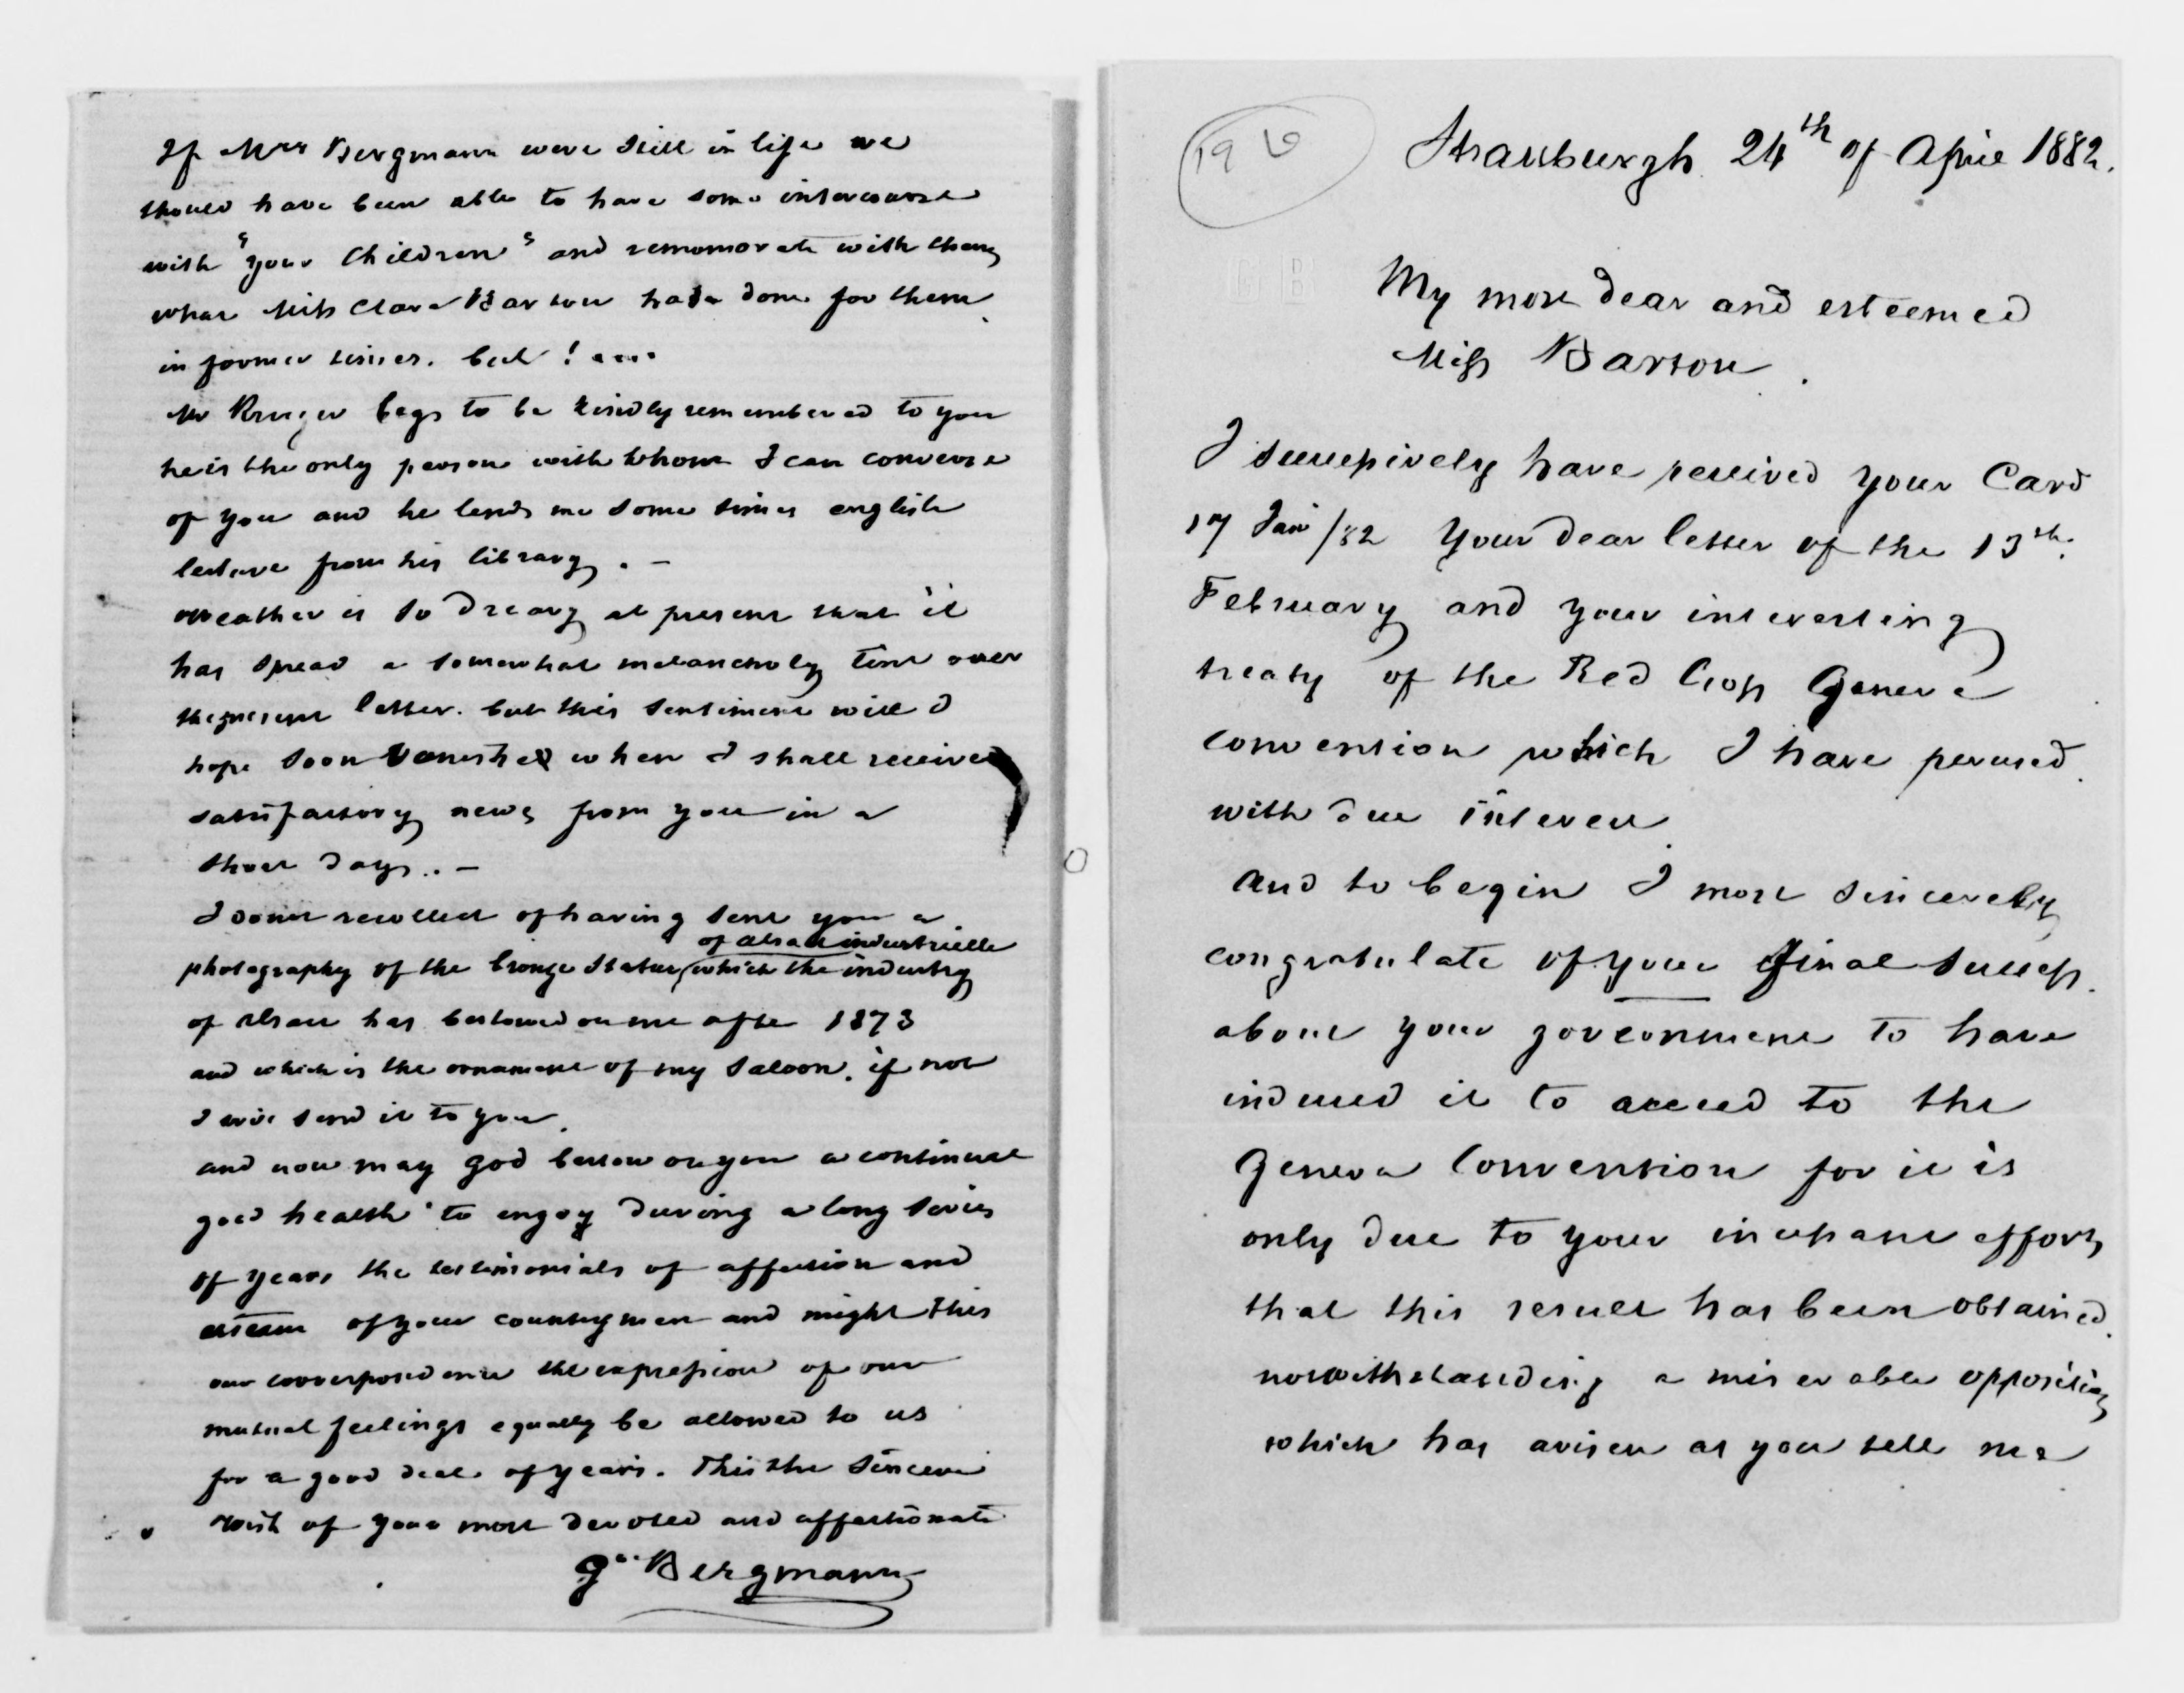 If Mrs Bergmann were still in life we
should have been able to have some intercourse
with "your Children" and rememorate with them
what Miss Clara Barton had done for them
in former times. but! ....
Mr Kruger begs to be kindly remembered to you
he is the only person with whom I can converse
of you and he lends me some times english
lecture from his library. -
Weather is so dreary at present that it
has spread a somewhat melancholy tint over
the present letter. but this sentiment will I
hope soon vanished when I shall receive
satisfactory news from you in a
short days.. -
I donnt recollect of having sent you a
photography of the bronze Statue, which the industry
of alsace industrielle
of Alsace has bestowed on me afte 1873
and which is the ornament of my Saloon. if not
I will send it to you.
and now may god bestow on you a continual
good health to enjoy during a long series
of years the testimonials of affection and
esteem of your countrymen and might this
our correspondence the expression of our
mutual feelings equally be allowed to us
for a good deal of years. This the sincere
wish of your most devoted and affectionate
Gve Bergmann
19
Strassburgh 24th of April 1882.
GB
My most dear and esteemed
Miss Barton.
I successively have received your Card
17 Jan /82 your dear letter of the 13th.
February and your interesting
treaty of the Red Cross Geneva
convention which I have perused
with due interest.
and to begin I most sincerely
congratulate of your final success
about your government to have
induced it to acceed to the
Geneva Convention for it is
only due to your incessant efforts
that this result has been obtained.
notwithstanding a miserable opposition
which has arisen as you tell me